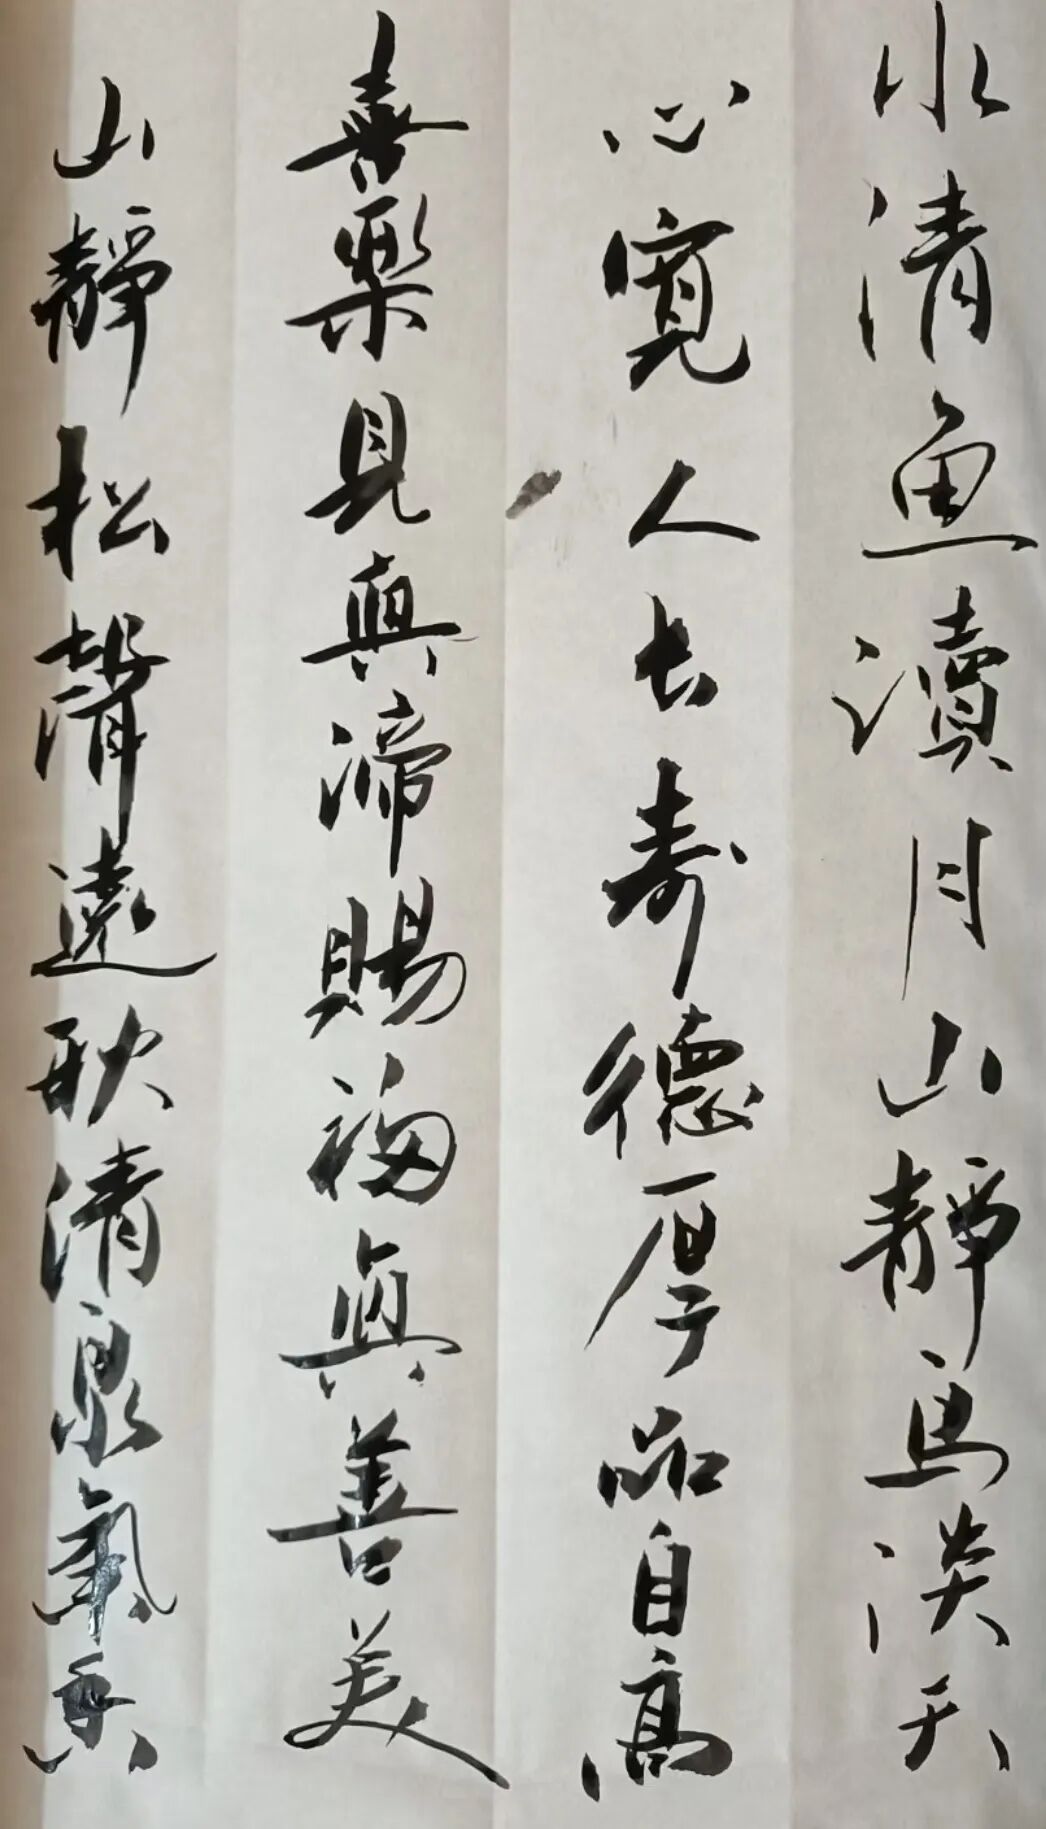 水清魚讀月山靜鳥淡天
心寬人长寿德厚品自高
喜樂見真谛賜福真善美
山靜松聲遠秋清泉氣香